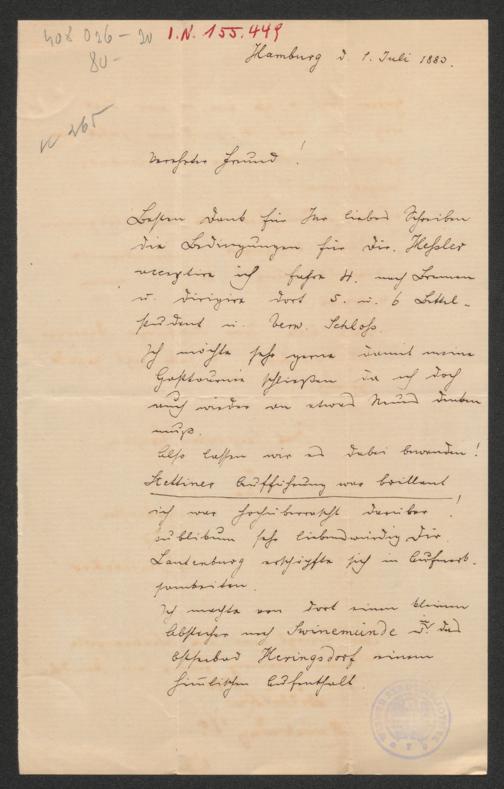 408 026 – 20
80 –
I.N. 155.449
Hamburg d 1. Juli 1883.
No 265
Verehrter Freund!
Besten Dank für Ihr liebes Schreiben
die Bedingungen für Dir. Hessler
acceptire ich fahre 4. nach Bremen
u. dirigire dort 5. u. 6 Bettel-
student u. Verw. Schloss.
Ich möchte sehr gerne damit meine
Gasttournée schließen da ich doch
auch wieder an etwas Neues denken
muß.
Also lassen wir es dabei bewenden!
Stettiner Aufführung war brillant
ich war hochüberrascht darüber!
Publikum sehr liebenswürdig Dir.
Lautenburg erschöpfte sich in Aufmerk-
samkeiten.
Ich machte von dort einen kleinen
Abstecher nach Swinemünde das
Ostseebad Heringsdorf einem
himmlischen Aufenthalt.